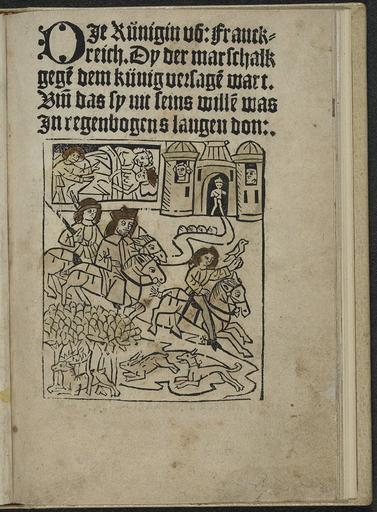 DJe Künigin vō: Franck-
reich. Dy der marschalk
gegē dem künig versagē wart.
Vm̄ das sy nit seins willē was
In regenbogen s langen don:.